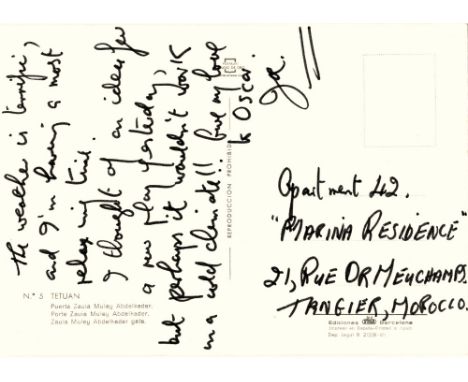 The weather is terrific,
and I'm having a most
relaxing time.
I thought of an idea for
a new play yesterday,
but perhaps it wouldn't work
in a cold climate!! Give my love
to Oscar.
Apartment 42.
"MARINA RESIDENCE"
21, RUE ORMEUCHAMPS.
TANGIER, MOROCCO.
REPRODUCCION PROHIBIDA
N.º 5 TETUAN
Puerta Zauia Muley Abdelkader.
Porte Zauia Muley Abdelkader.
Zauia Muley Abdelkader gate.
Ediciones Barcelona